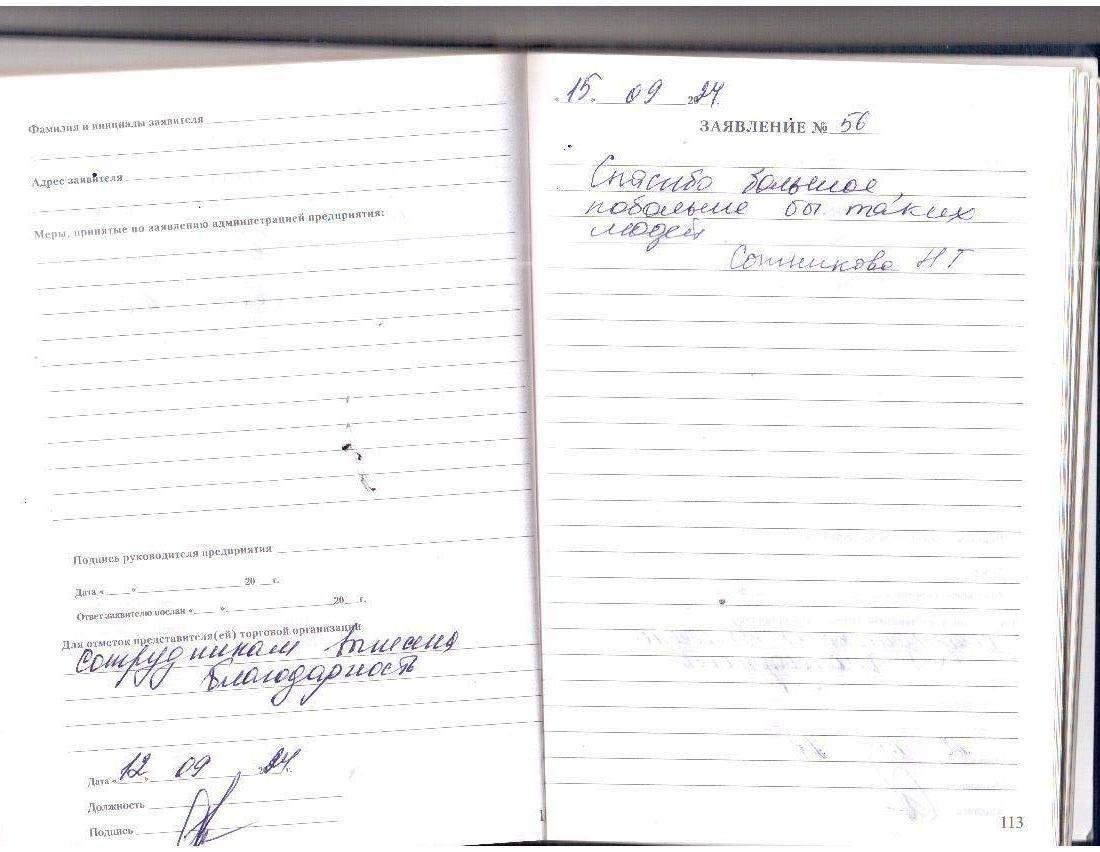 Фамилия и инициалы заявителя
Адрес заявителя
Меры, принятые по заявлению администрацией предприятия:
Подпись руководителя предприятия
Дата « » 20 г.
Ответ заявителю послан « » 20 г.
Для отметок представителя(ей) торговой организации
Сотрудникам вынесена
благодарность
Дата « 12 » 09 2024 г.
Должность
Подпись
« 15 » 09 2024 г.
ЗАЯВЛЕНИЕ № 56
Спасибо большое,
побольше бы таких
людей
Сотникова Н Г
113